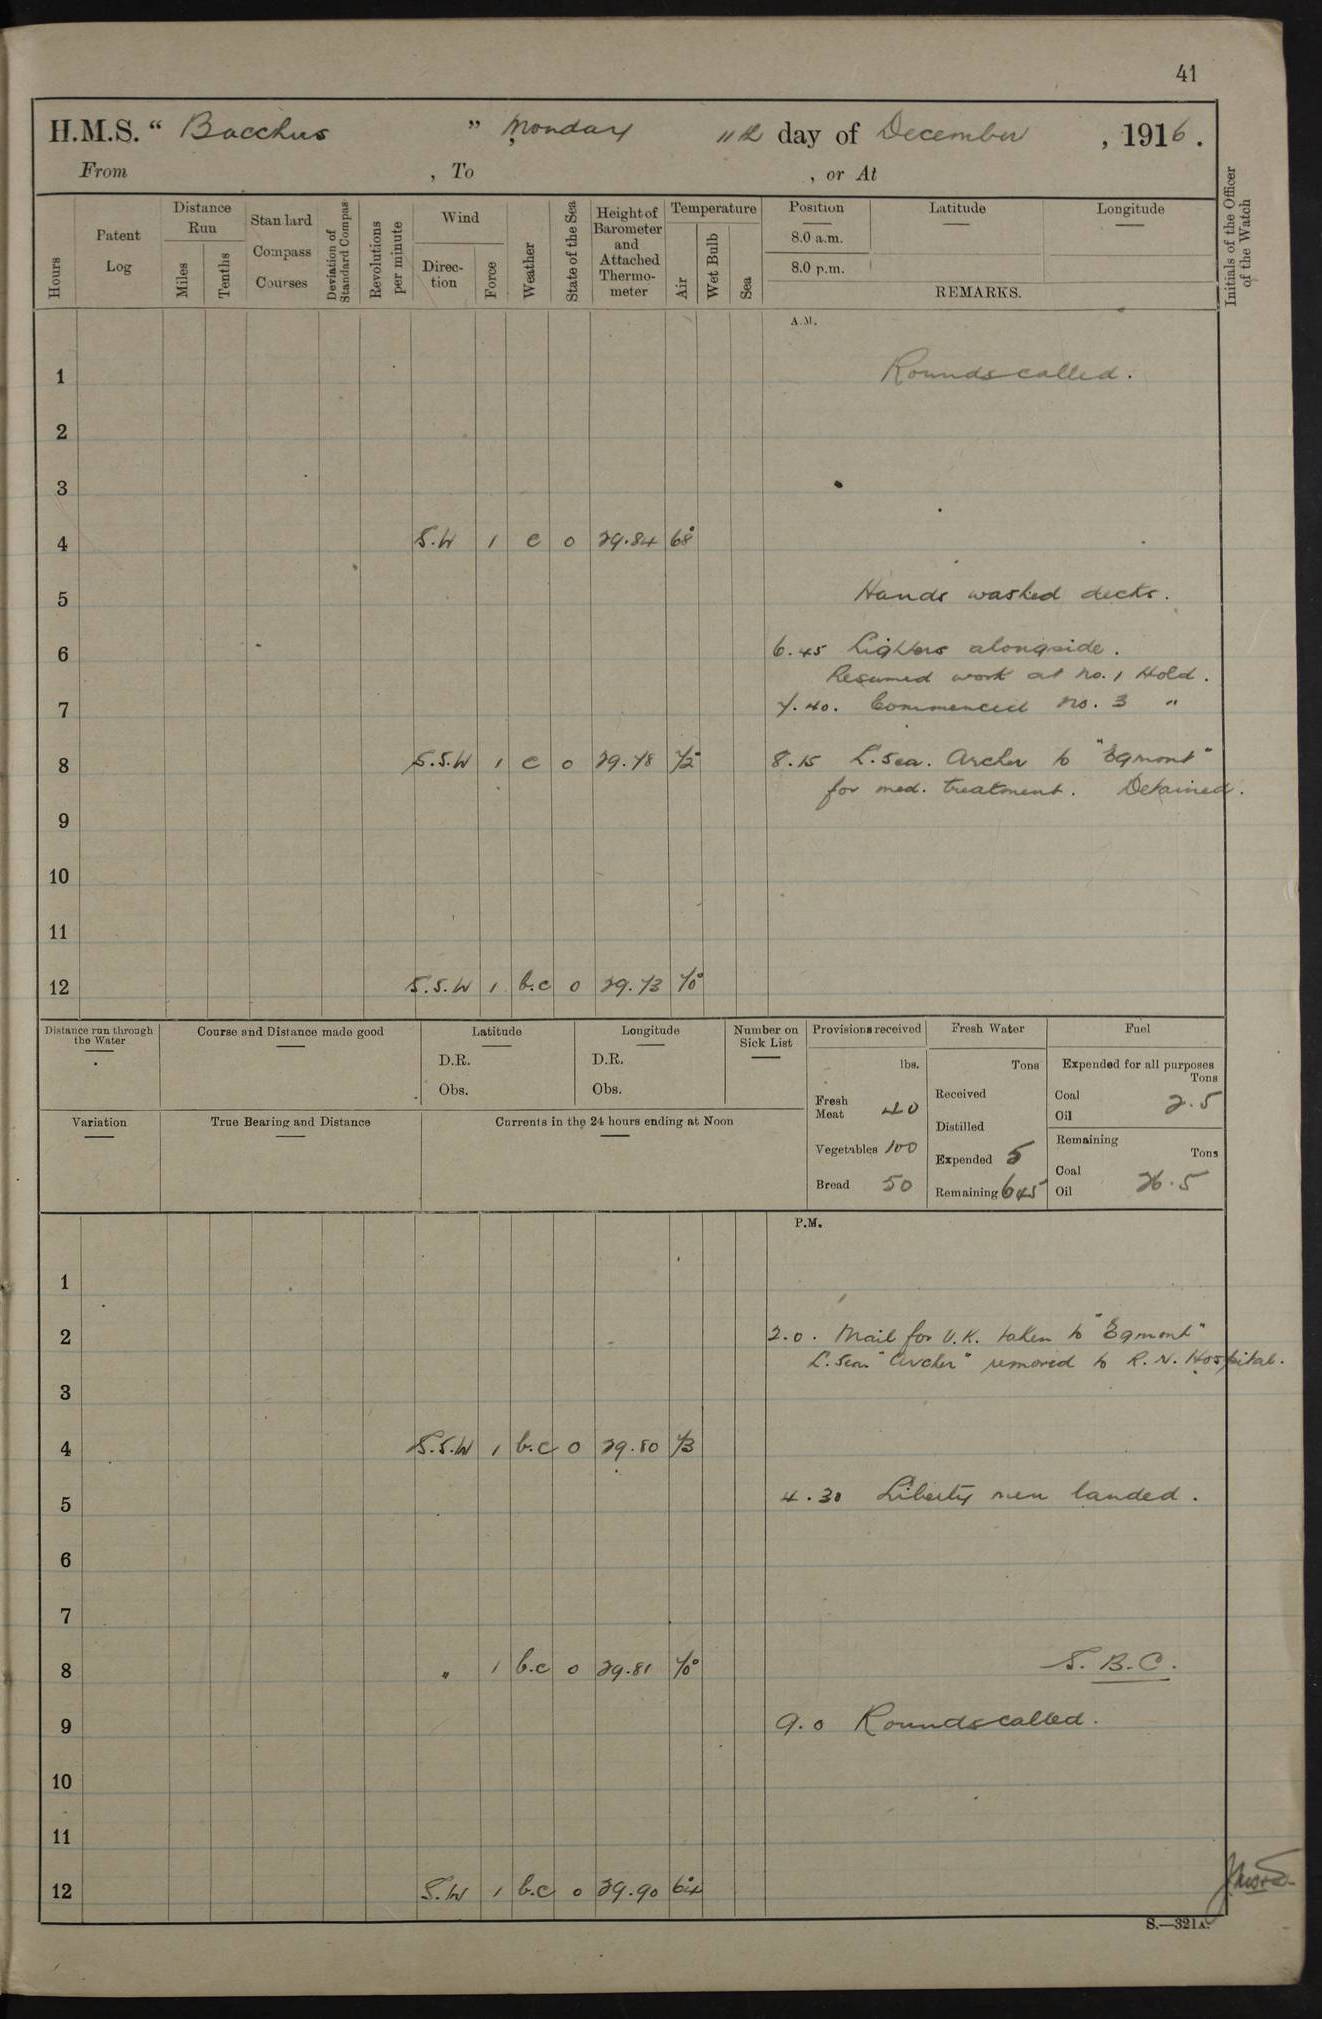 41
H.M.S. “ Bacchus ” Monday 11th day of December , 1916.
From , To , or At
Hours
Patent Log
Distance Run
Miles
Tenths
Standard Compass Courses
Deviation of Standard Compass
Revolutions per minute
Wind
Direction
Force
Weather
State of the Sea
Height of Barometer and Attached Thermometer
Temperature
Air
Wet Bulb
Sea
Position
8.0 a.m.
8.0 p.m.
Latitude
Longitude
REMARKS.
Initials of the Officer of the Watch
A.M.
1 Rounds called.
2
3
4 S.W 1 c 0 29.84 68°
5 Hands washed decks.
6 6.45 Lighters alongside.
Resumed work at No. 1 Hold.
7 7.40. Commenced No. 3 "
8 S.S.W 1 c 0 29.78 72° 8.15 L. Sea. Archer to "Egmont"
for med. treatment. Detained.
9
10
11
12 S.S.W 1 b.c 0 29.73 70°
Distance run through the Water
Course and Distance made good
Latitude
D.R.
Obs.
Longitude
D.R.
Obs.
Number on Sick List
Variation
True Bearing and Distance
Currents in the 24 hours ending at Noon
Provisions received
lbs.
Fresh Meat 40
Vegetables 100
Bread 50
Fresh Water
Tons
Received
Distilled
Expended 5
Remaining 645
Fuel
Expended for all purposes
Tons
Coal 2.5
Oil
Remaining
Tons
Coal 26.5
Oil
P.M.
1
2 2.0. Mail for U.K. taken to "Egmont"
L. Sea. "Archer" removed to R.N. Hospital.
3
4 S.S.W 1 b.c 0 29.80 73
4.30 Liberty men landed.
5
6
7
8 " 1 b.c 0 29.81 70° S.B.C.
9 9.0 Rounds called.
10
11
12 S.W 1 b.c 0 29.90 64°
S.—321A.